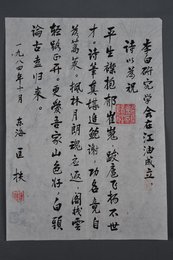 李白研究学会在江油成立
诗以为祝
平生襟抱郁崔嵬，跋扈飞扬不世
才。诗笔真堪追鲍谢，功名竟自
蒿莱。枫林月朗魂应返，阁栈云
轻路正开。更喜吾家山色好，白头
论古盍归来。
一九八四年十月 东海 匡扶